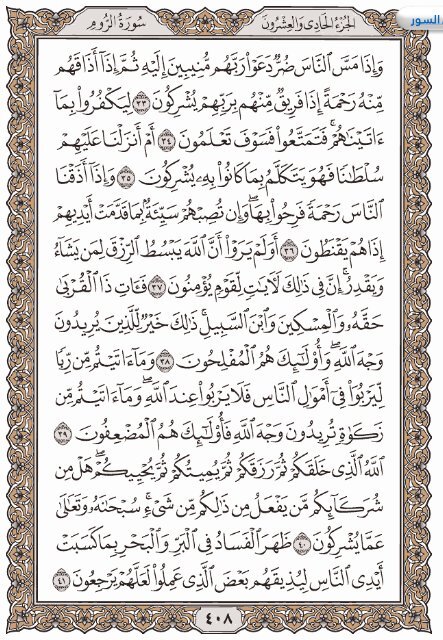 السور
الجزء الحادي والعشرون سورة الروم
وَإِذَا مَسَّ ٱلنَّاسَ ضُرٌّ دَعَوْا۟ رَبَّهُم مُّنِيبِينَ إِلَيْهِ ثُمَّ إِذَآ أَذَاقَهُم
مِّنْهُ رَحْمَةً إِذَا فَرِيقٌ مِّنْهُم بِرَبِّهِمْ يُشْرِكُونَ ٣٣ لِيَكْفُرُوا۟ بِمَآ
ءَاتَيْنَٰهُمْ ۚ فَتَمَتَّعُوا۟ فَسَوْفَ تَعْلَمُونَ ٣٤ أَمْ أَنزَلْنَا عَلَيْهِمْ
سُلْطَٰنًا فَهُوَ يَتَكَلَّمُ بِمَا كَانُوا۟ بِهِۦ يُشْرِكُونَ ٣٥ وَإِذَآ أَذَقْنَا
ٱلنَّاسَ رَحْمَةً فَرِحُوا۟ بِهَا ۖ وَإِن تُصِبْهُمْ سَيِّئَةٌۢ بِمَا قَدَّمَتْ أَيْدِيهِمْ
إِذَا هُمْ يَقْنَطُونَ ٣٦ أَوَلَمْ يَرَوْا۟ أَنَّ ٱللَّهَ يَبْسُطُ ٱلرِّزْقَ لِمَن يَشَآءُ
وَيَقْدِرُ ۚ إِنَّ فِى ذَٰلِكَ لَـَٔايَٰتٍ لِّقَوْمٍ يُؤْمِنُونَ ٣٧ فَـَٔاتِ ذَا ٱلْقُرْبَىٰ
حَقَّهُۥ وَٱلْمِسْكِينَ وَٱبْنَ ٱلسَّبِيلِ ۚ ذَٰلِكَ خَيْرٌ لِّلَّذِينَ يُرِيدُونَ
وَجْهَ ٱللَّهِ ۖ وَأُو۟لَٰٓئِكَ هُمُ ٱلْمُفْلِحُونَ ٣٨ وَمَآ ءَاتَيْتُم مِّن رِّبًا
لِّيَرْبُوَا۟ فِىٓ أَمْوَٰلِ ٱلنَّاسِ فَلَا يَرْبُوا۟ عِندَ ٱللَّهِ ۖ وَمَآ ءَاتَيْتُم مِّن
زَكَوٰةٍ تُرِيدُونَ وَجْهَ ٱللَّهِ فَأُو۟لَٰٓئِكَ هُمُ ٱلْمُضْعِفُونَ ٣٩
ٱللَّهُ ٱلَّذِى خَلَقَكُمْ ثُمَّ رَزَقَكُمْ ثُمَّ يُمِيتُكُمْ ثُمَّ يُحْيِيكُمْ ۖ هَلْ مِن
شُرَكَآئِكُم مَّن يَفْعَلُ مِن ذَٰلِكُم مِّن شَىْءٍ ۚ سُبْحَٰنَهُۥ وَتَعَٰلَىٰ
عَمَّا يُشْرِكُونَ ٤٠ ظَهَرَ ٱلْفَسَادُ فِى ٱلْبَرِّ وَٱلْبَحْرِ بِمَا كَسَبَتْ
أَيْدِى ٱلنَّاسِ لِيُذِيقَهُم بَعْضَ ٱلَّذِى عَمِلُوا۟ لَعَلَّهُمْ يَرْجِعُونَ ٤١
٤٠٨